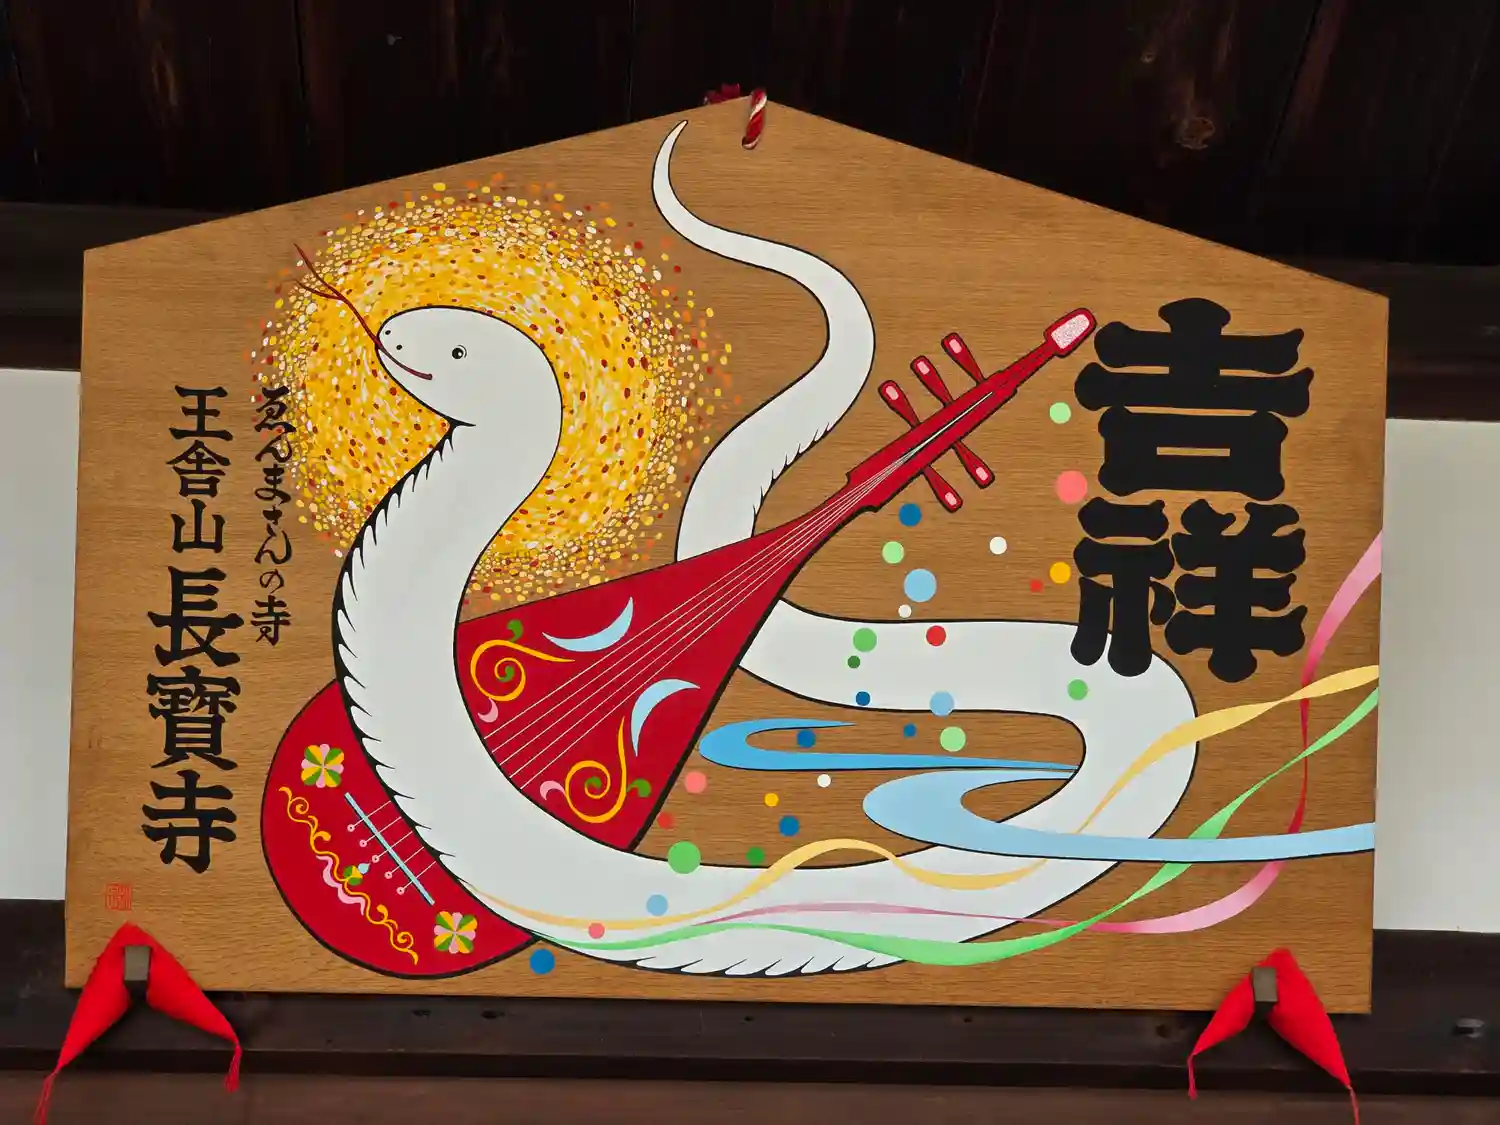 吉祥
ゑんまさんの寺
王舎山 長寶寺